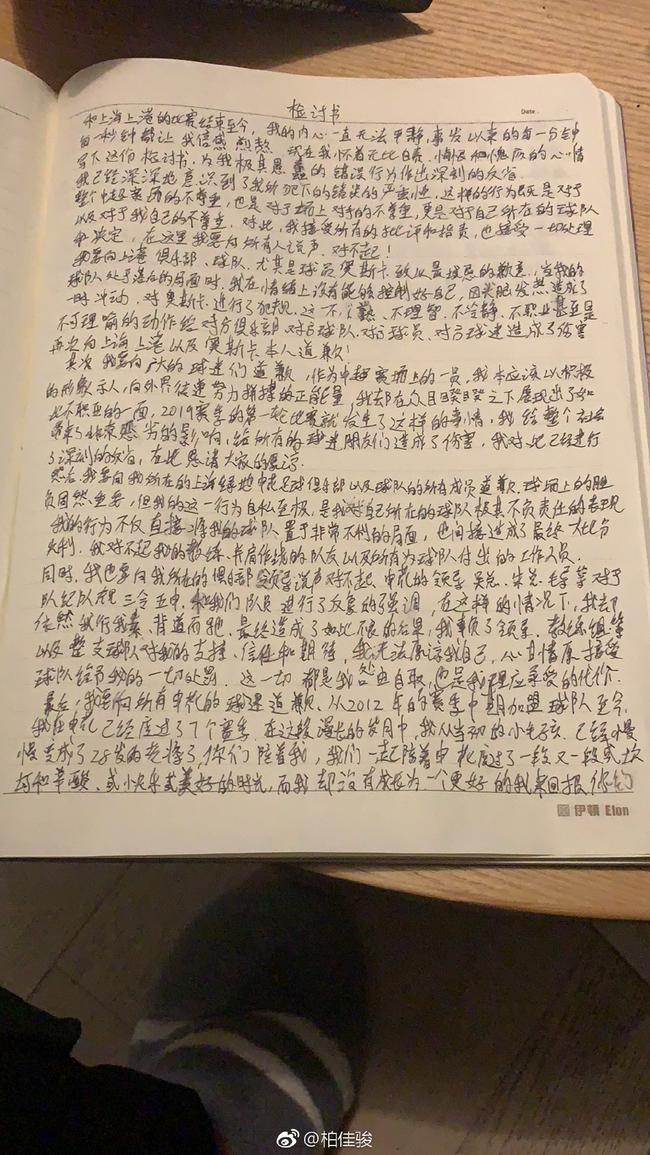 检讨书
Date.
和上海上港的比赛结束至今，我的内心一直无法平静，事发以来的每一分钟
每一秒钟都让我倍感煎熬。现在我怀着无比自责、悔恨和愧疚的心情
写下这份检讨书，为我极其愚蠢的错误行为作出深刻的反省
我已经深深地意识到了我所犯下的错误的严重性，这样的行为既是对于
整个中超赛场的不尊重，也是对于场上对手的不尊重，更是对于自己所在的球队
以及对于我自己的不尊重。对此，我接受所有的批评和指责，也接受一切处理
和决定，在这里我要向所有人说声：对不起！
我要向上港俱乐部、球队、尤其是球员奥斯卡致以最诚恳的歉意，当我的
球队处于落后的局面时，我在情绪上没有能够控制好自己，因头脑发热造成了
一时冲动，对奥斯卡进行了犯规。这一不、不理智、不冷静、不职业甚至是
不可理喻的动作给对方俱乐部对方球队、对方球员、对方球迷造成了伤害
再次向上海上港以及奥斯卡本人道歉！
其次我要向广大的球迷们道歉，作为中超赛场上的一员，我本应该以积极
的形象示人，向外界传递努力拼搏的正能量，我却在众目睽睽之下展现出了如
此不职业的一面，2019赛季的第一轮比赛就发生了这样的事情，我给整个社会
带来了非常恶劣的影响，给所有的球迷朋友们造成了伤害，我对此已经进行
了深刻的反省，在此恳请大家的原谅
然后，我要向我所在的上海绿地申花足球俱乐部以及球队的所有成员道歉。球场上的胜
负固然重要，但我的这一行为自私至极，是我对自己所在的球队极其不负责任的表现
我的行为不仅直接将我的球队置于非常不利的局面，也间接造成了最终大比分
失利。我对不起我的教练、并肩作战的队友以及所有为球队付出的工作人员.
同时，我也要向我所在的俱乐部领导说声对不起，申花的领导吴总、朱总、毛导等对于
队纪队规三令五申，和我们队员进行了反复的强调，在这样的情况下，我却
依然我行我素、背道而驰，最终造成了如此不良的后果，我辜负了领导、教练组等
以及整支球队对我的支持、信任和期待，我无法原谅我自己，心甘情愿接受
球队给予我的一切处罚。这一切都是我咎由自取，也是我理应承受的代价.
最后，我要向所有申花的球迷道歉，从2012年的赛季中期加盟球队至今.
我在申花已经度过了7个赛季。在这段漫长的岁月中，我从当初的小毛孩，已经慢
慢变成了28岁的老将了，你们陪着我，我们一起陪着申花度过了一段又一段或坎
坷和辛酸、或快乐或美好的时光，而我却没有成长为一个更好的我来回报你们
伊顿 Eton
@柏佳骏